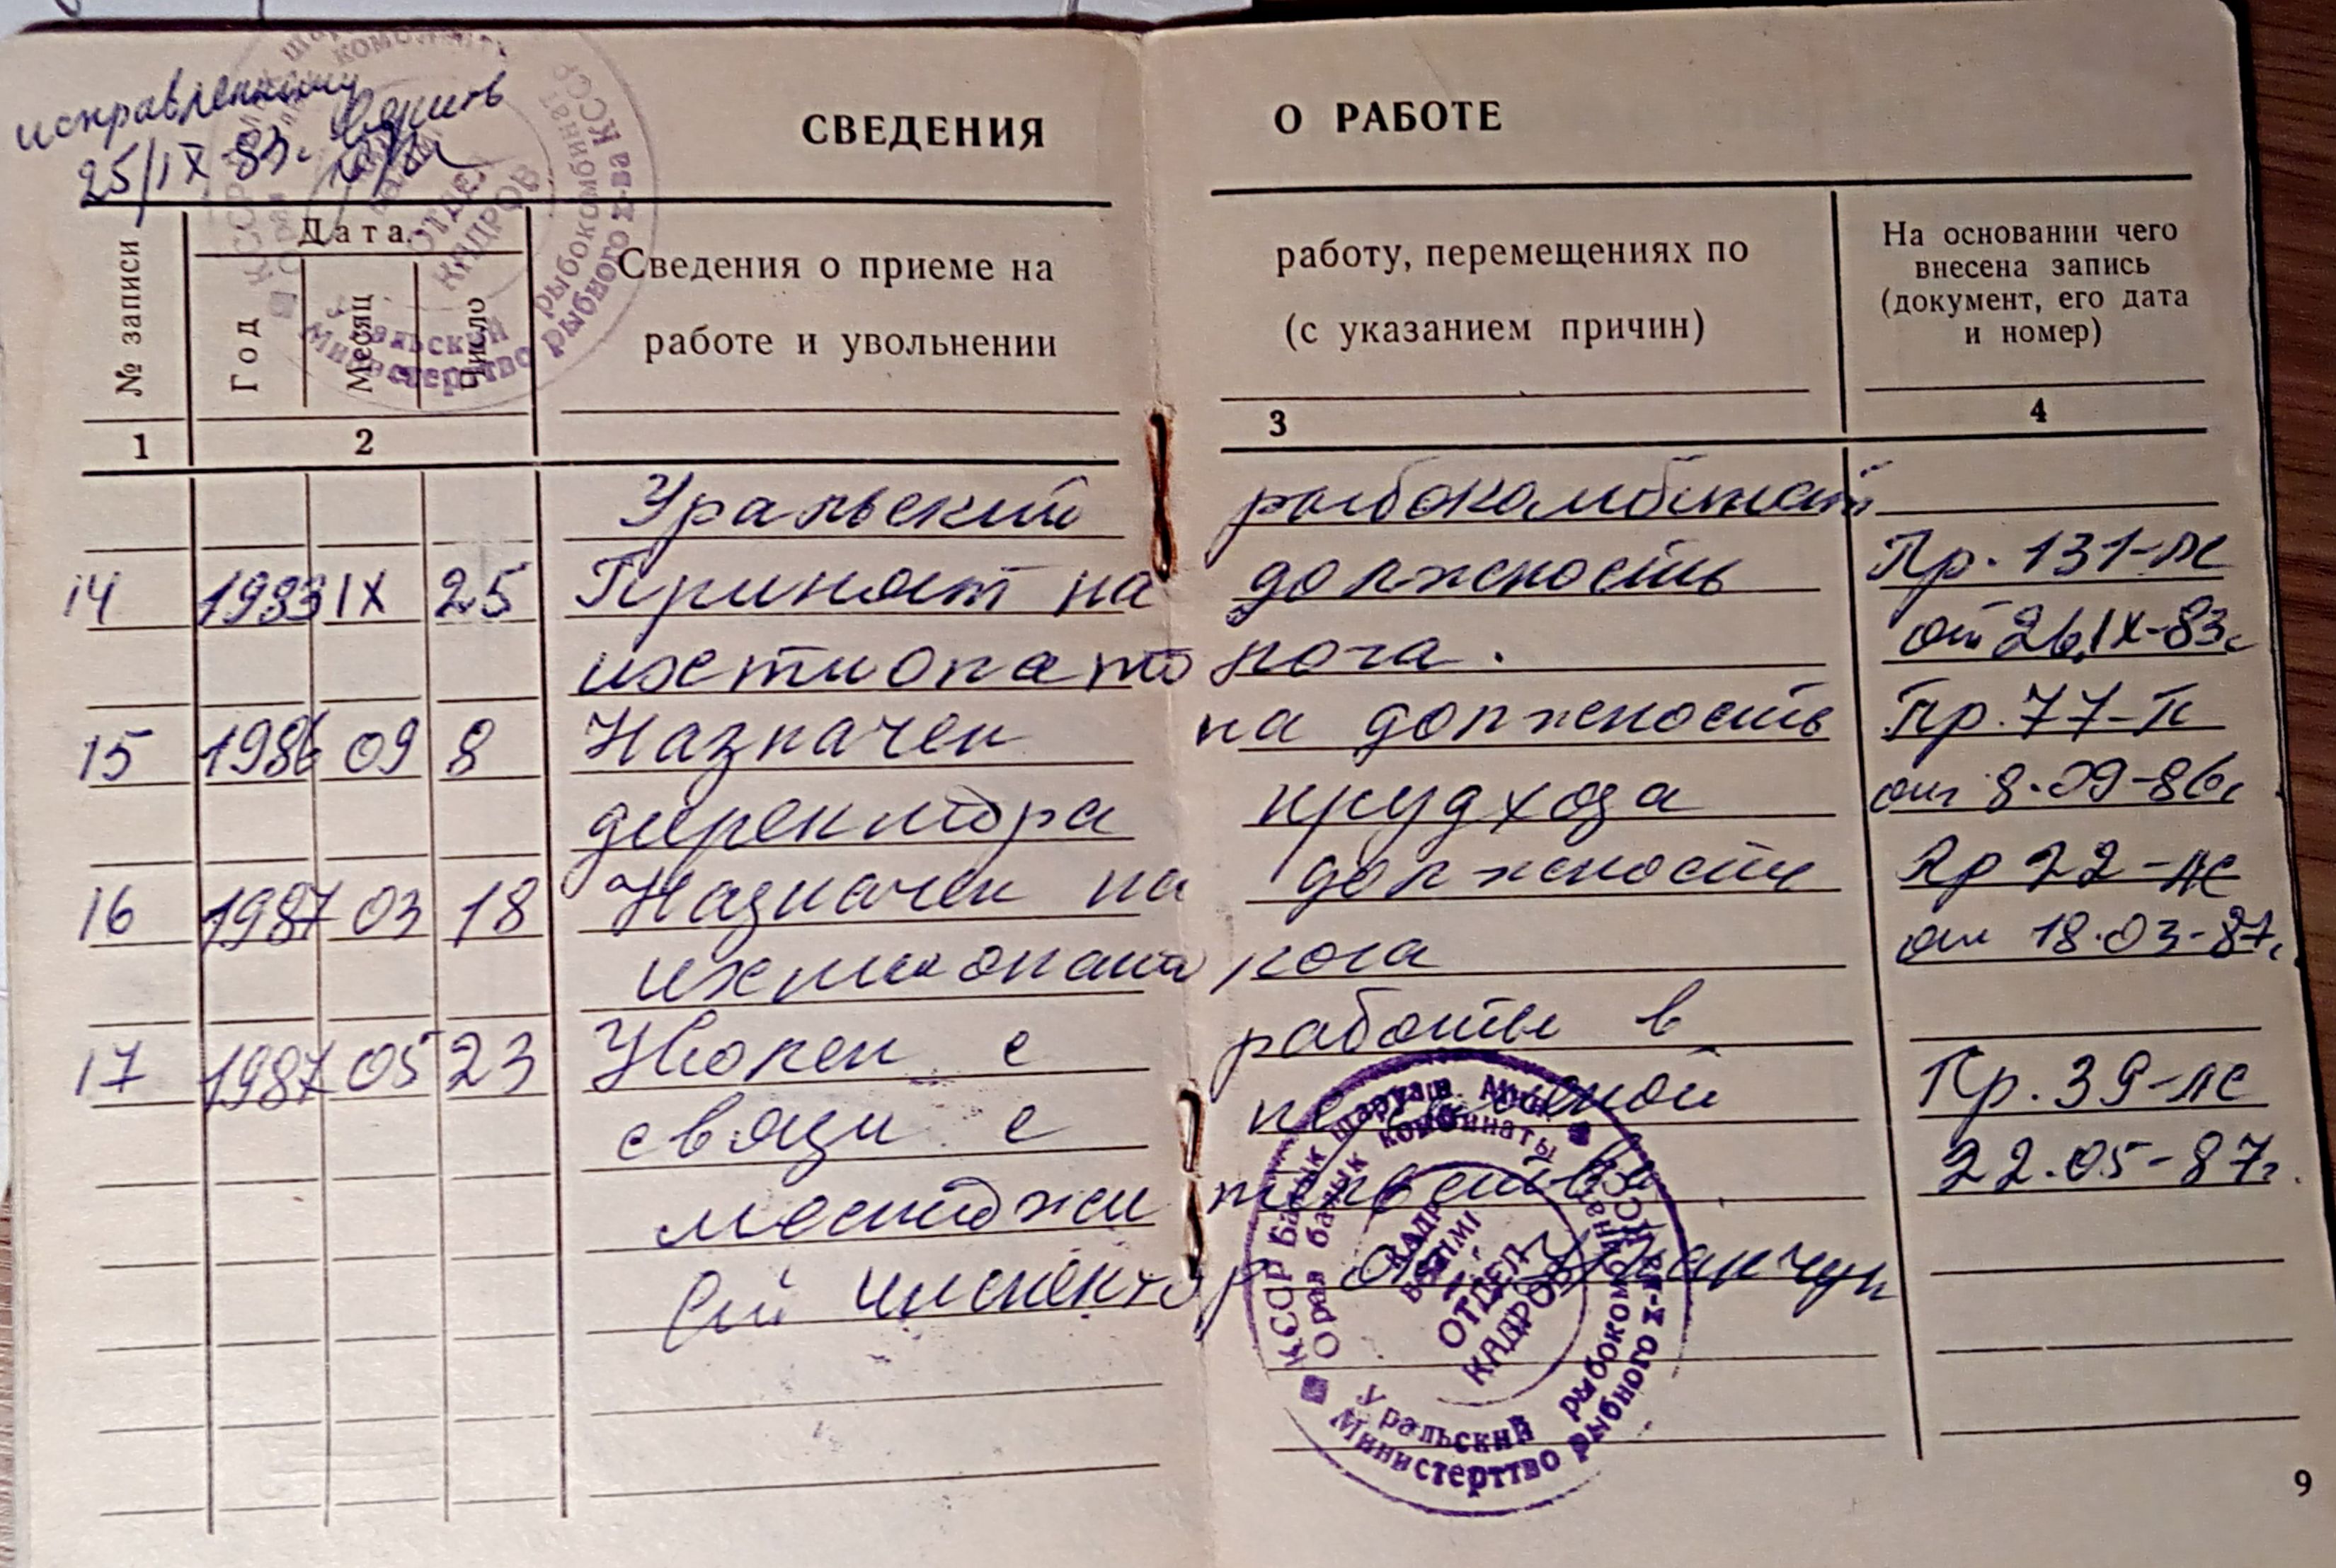 исправленному верить
25/IX-83г.
СВЕДЕНИЯ О РАБОТЕ
№ записи
Дата
Год
Месяц
Число
Сведения о приеме на работу, перемещениях по
работе и увольнении (с указанием причин)
На основании чего
внесена запись
(документ, его дата
и номер)
1 2 3 4
Уральский рыбокомбинат
14 1983 IX 25 Принят на должность Пр. 131-лс
ихтиопатолога. от 26.IX-83г
15 1986 09 8 Назначен на должность Пр. 77-к
директора прудхоза от 8.09-86г
16 1987 03 18 Назначен на должность Пр 22-лс
ихтиопатолога от 18.03-87г.
17 1987 05 23 Уволен с работы в
связи с переменой Пр. 39-лс
местожительства 22.05-87г.
Ст инспектор ок
КССР Балык шаруаш. Мин
Орал балык комбинаты
КАДР
БӨЛІМІ
ОТДЕЛ
КАДРОВ
Уральский рыбокомбинат
Министерство рыбного х-ва КССР
9